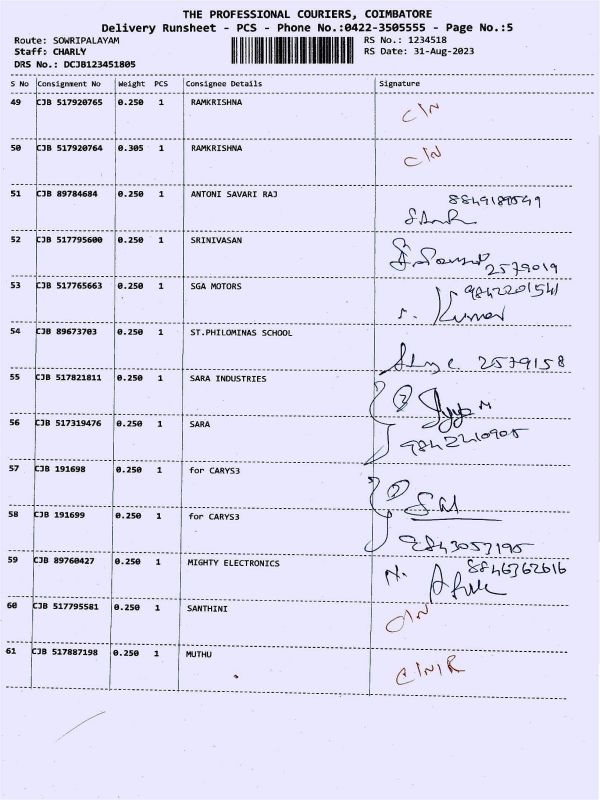 THE PROFESSIONAL COURIERS, COIMBATORE
Delivery Runsheet - PCS - Phone No.:0422-3505555 - Page No.:5
Route: SOWRIPALAYAM RS No.: 1234518
Staff: CHARLY RS Date: 31-Aug-2023
DRS No.: DCJB123451805
S No Consignment No Weight PCS Consignee Details Signature
49 CJB 517920765 0.250 1 RAMKRISHNA C/N
50 CJB 517920764 0.305 1 RAMKRISHNA C/N
51 CJB 89784684 0.250 1 ANTONI SAVARI RAJ
52 CJB 517795600 0.250 1 SRINIVASAN 2579019
53 CJB 517765663 0.250 1 SGA MOTORS 9842201541
Kumar
54 CJB 89673703 0.250 1 ST.PHILOMINAS SCHOOL 2579158
55 CJB 517821811 0.250 1 SARA INDUSTRIES 2
56 CJB 517319476 0.250 1 SARA 9842210905
57 CJB 191698 0.250 1 for CARYS3
58 CJB 191699 0.250 1 for CARYS3 9843057195
59 CJB 89760427 0.250 1 MIGHTY ELECTRONICS
60 CJB 517795581 0.250 1 SANTHINI
61 CJB 517887198 0.250 1 MUTHU